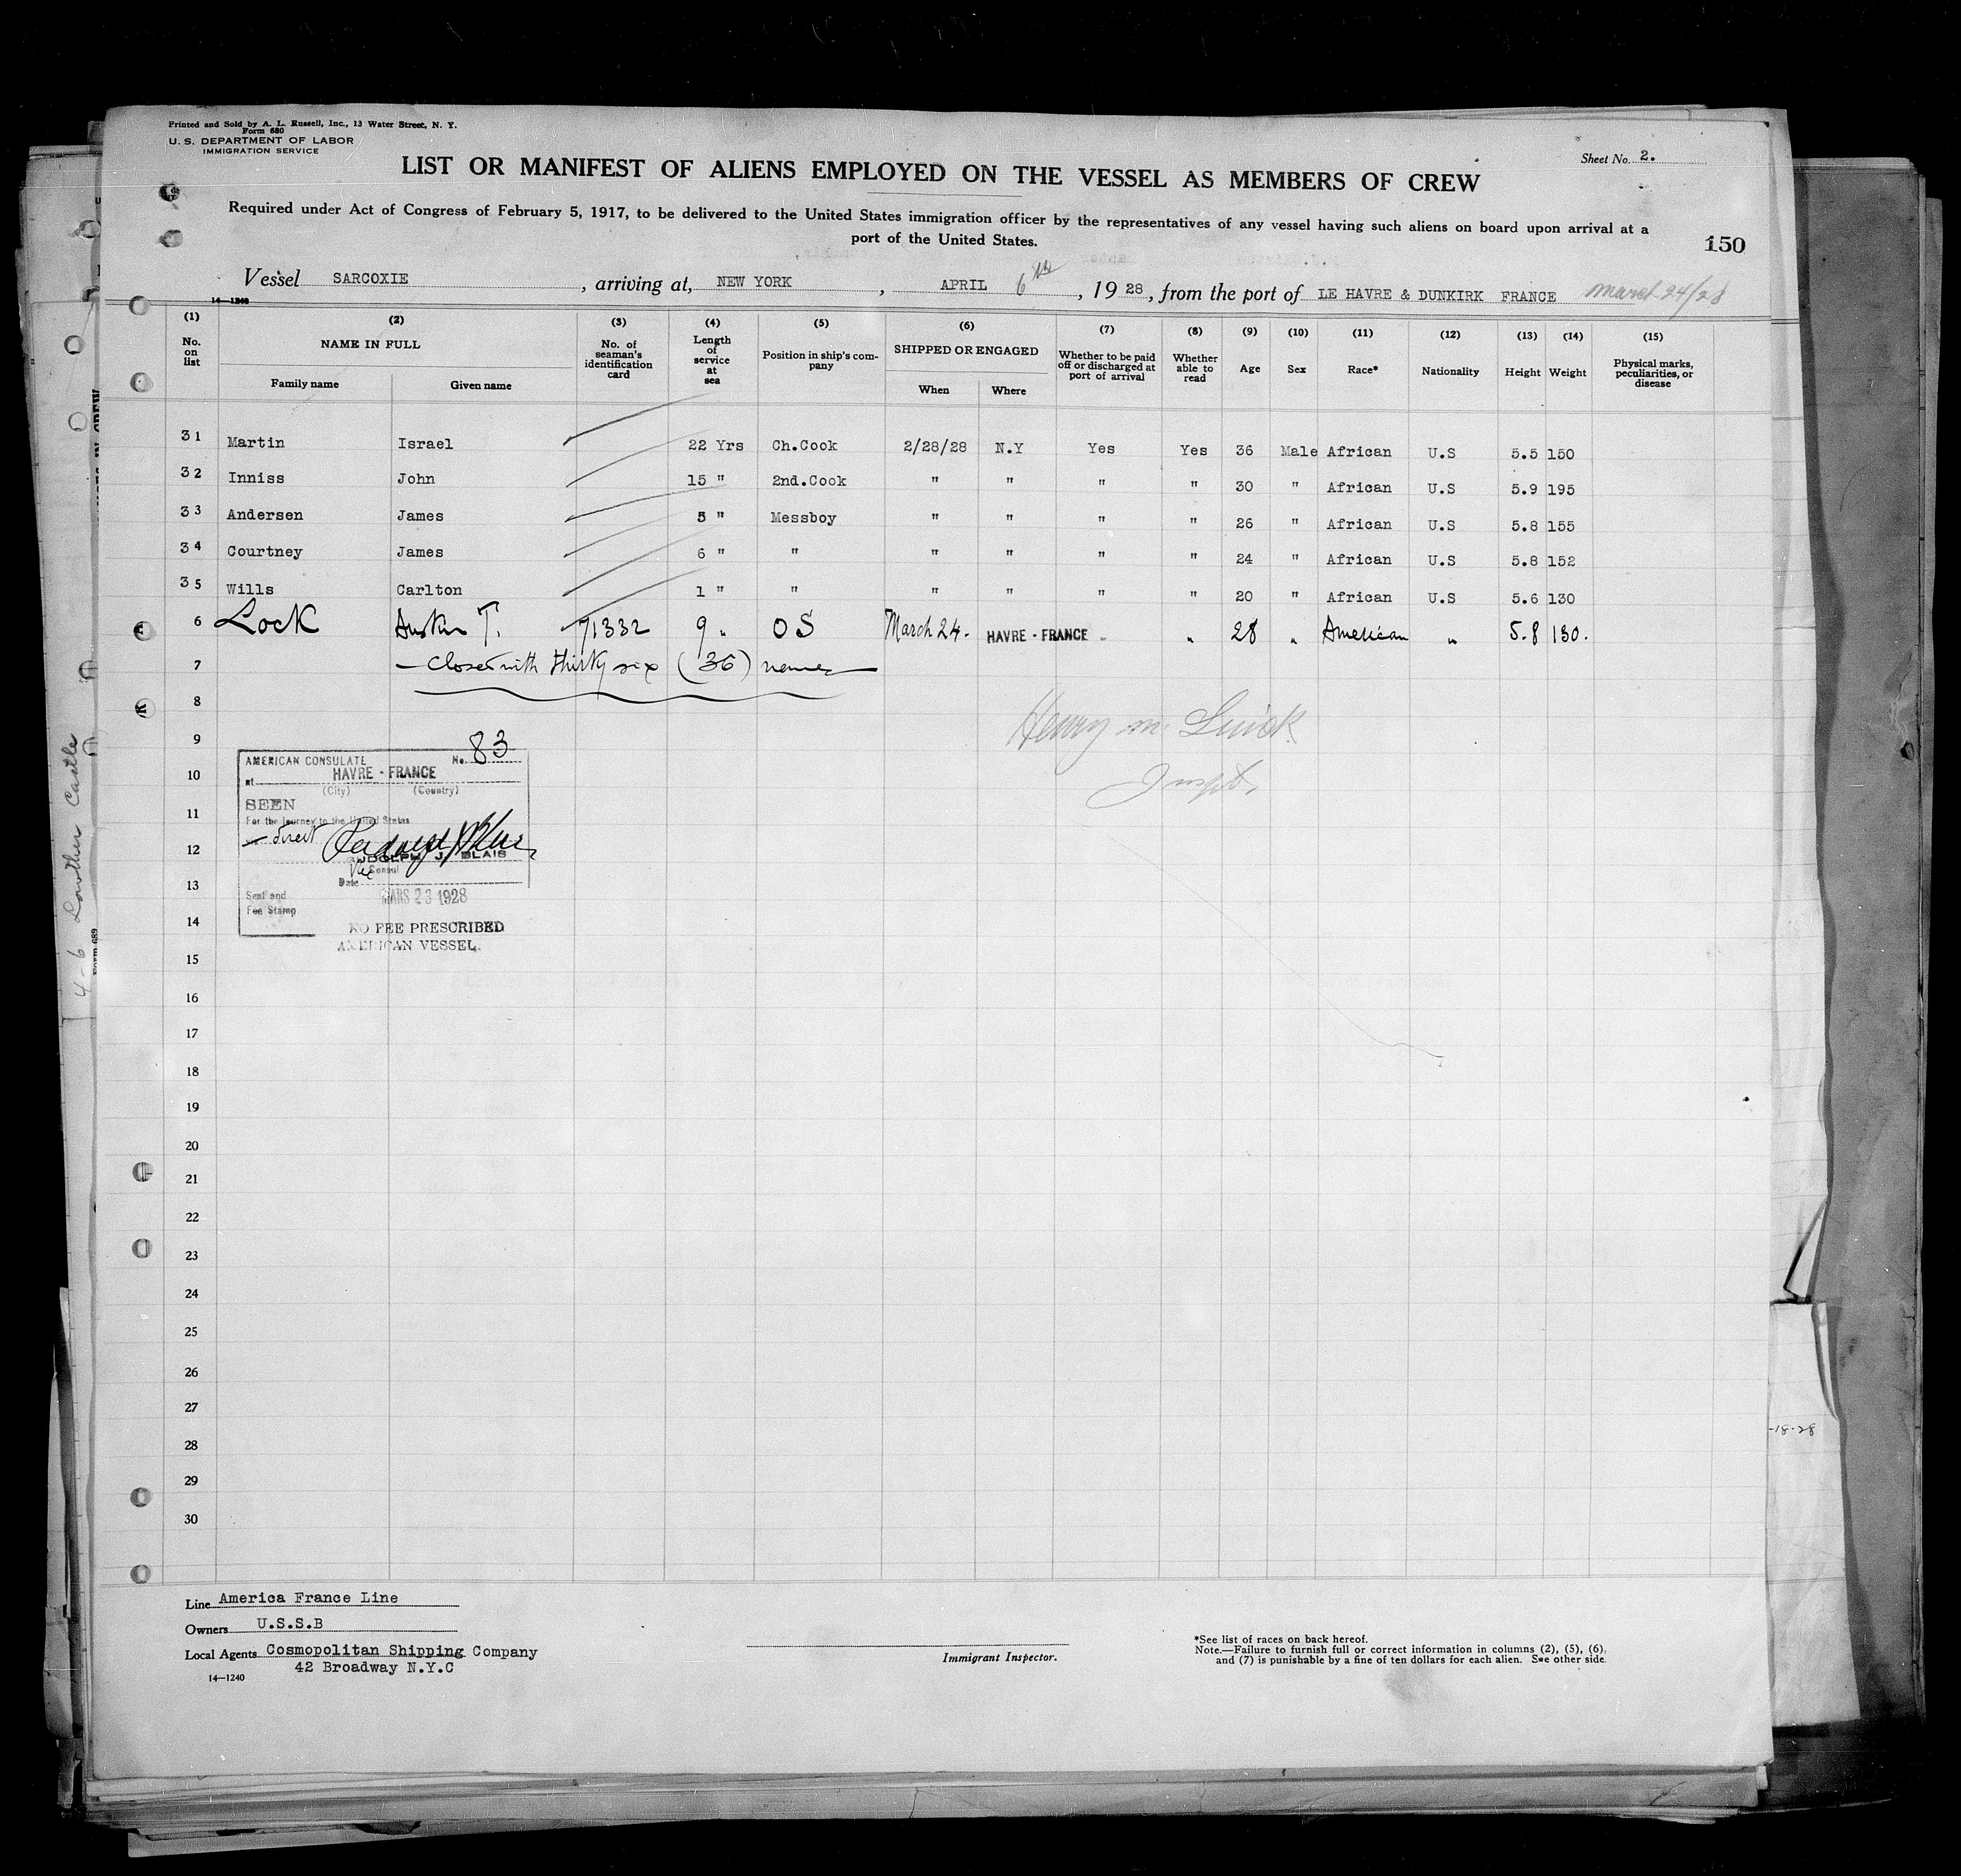 Printed and Sold by A. L. Russell, Inc., 13 Water Street, N. Y.
Form 680
U. S. DEPARTMENT OF LABOR
IMMIGRATION SERVICE
Sheet No. 2.
LIST OR MANIFEST OF ALIENS EMPLOYED ON THE VESSEL AS MEMBERS OF CREW
Required under Act of Congress of February 5, 1917, to be delivered to the United States immigration officer by the representatives of any vessel having such aliens on board upon arrival at a
port of the United States.
150
Vessel SARCOXIE, arriving at, NEW YORK, APRIL 6th, 1928, from the port of LE HAVRE & DUNKIRK FRANCE March 24/28
14—1240
(1) (2) (3) (4) (5) (6) (7) (8) (9) (10) (11) (12) (13) (14) (15)
No. on list NAME IN FULL Family name Given name No. of seaman's identification card Length of service at sea Position in ship's company SHIPPED OR ENGAGED When Where Whether to be paid off or discharged at port of arrival Whether able to read Age Sex Race* Nationality Height Weight Physical marks, peculiarities, or disease
31 Martin Israel 22 Yrs Ch.Cook 2/28/28 N.Y Yes Yes 36 Male African U.S 5.5 150
32 Inniss John 15 " 2nd.Cook " " " " 30 " African U.S 5.9 195
33 Andersen James 5 " Messboy " " " " 26 " African U.S 5.8 155
34 Courtney James 6 " " " " " " 24 " African U.S 5.8 152
35 Wills Carlton 1 " " " " " " 20 " African U.S 5.6 130
6 Lock Austin T. 71332 9 " OS March 24. HAVRE - FRANCE " " 28 " American " 5.8 130.
7 — Closed with thirty six (36) names —
8
9
10
11
12
13
14
15
16
17
18
19
20
21
22
23
24
25
26
27
28
29
30
Henry M.
Inspt.
AMERICAN CONSULATE No. 83
at HAVRE - FRANCE
(City) (Country)
SEEN
For the journey to the United States
direct
RUDOLPH J. BLAIS
Vice Consul
Date MARS 23 1928
Seal and
Fee Stamp
NO FEE PRESCRIBED
AMERICAN VESSEL.
Line America France Line
Owners U.S.S.B
Local Agents Cosmopolitan Shipping Company
42 Broadway N.Y.C
14—1240
Immigrant Inspector.
*See list of races on back hereof.
Note.—Failure to furnish full or correct information in columns (2), (5), (6),
and (7) is punishable by a fine of ten dollars for each alien. See other side.
4-6 Lowther Castle
Form 689
-18-28